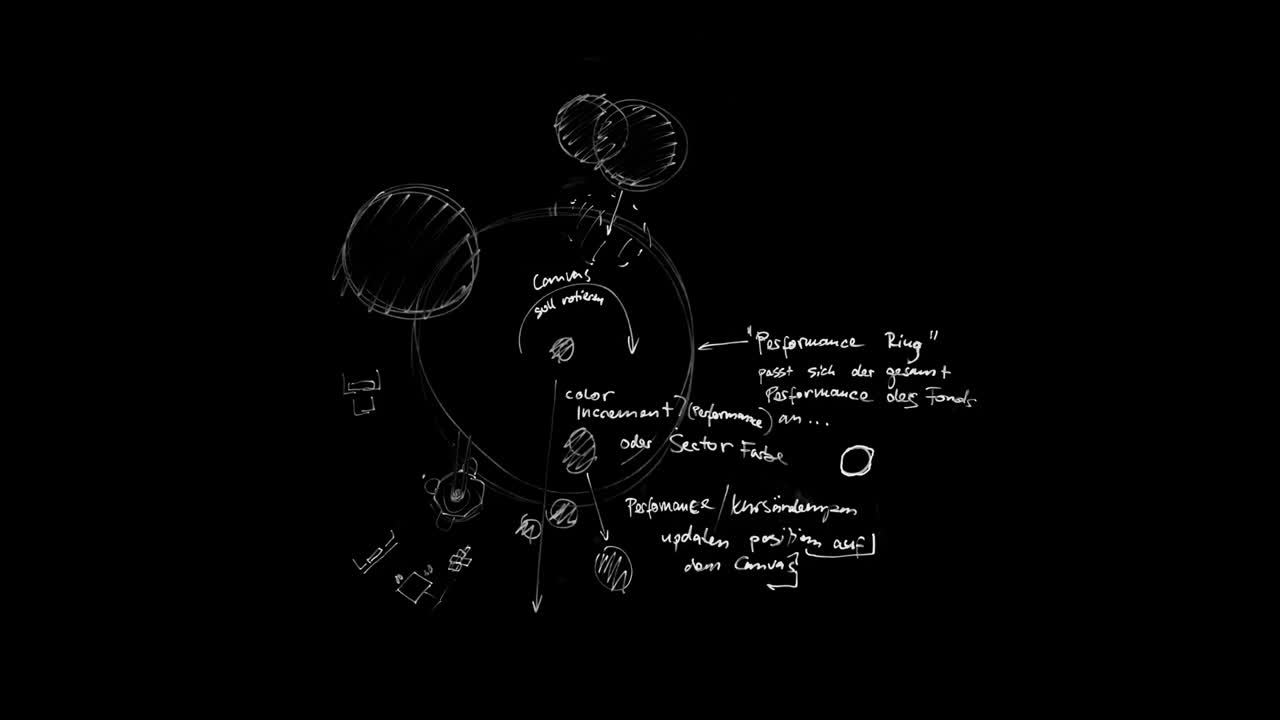 Canvas
soll rotieren
"Performance Ring"
passt sich der gesamt
Performance des Fonds
an...
color
Increment? (Performance)
oder Sector Farbe
Performance / Kursänderungen
updaten position auf
dem Canvas